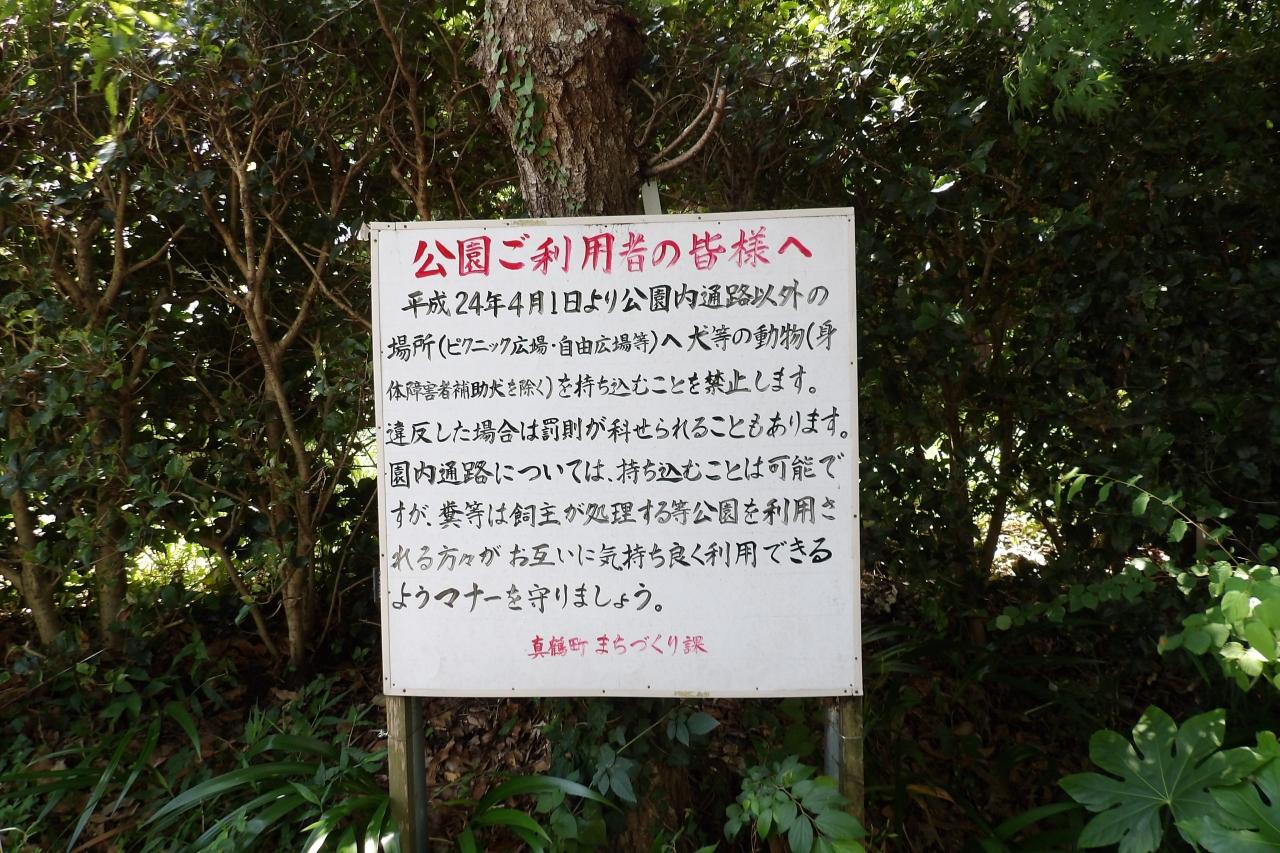 公園ご利用者の皆様へ
平成24年4月1日より公園内通路以外の
場所(ピクニック広場・自由広場等)へ犬等の動物(身
体障害者補助犬を除く)を持ち込むことを禁止します。
違反した場合は罰則が科せられることもあります。
園内通路については、持ち込むことは可能で
すが、糞等は飼主が処理する等公園を利用さ
れる方々がお互いに気持ち良く利用できる
ようマナーを守りましょう。
真鶴町 まちづくり課